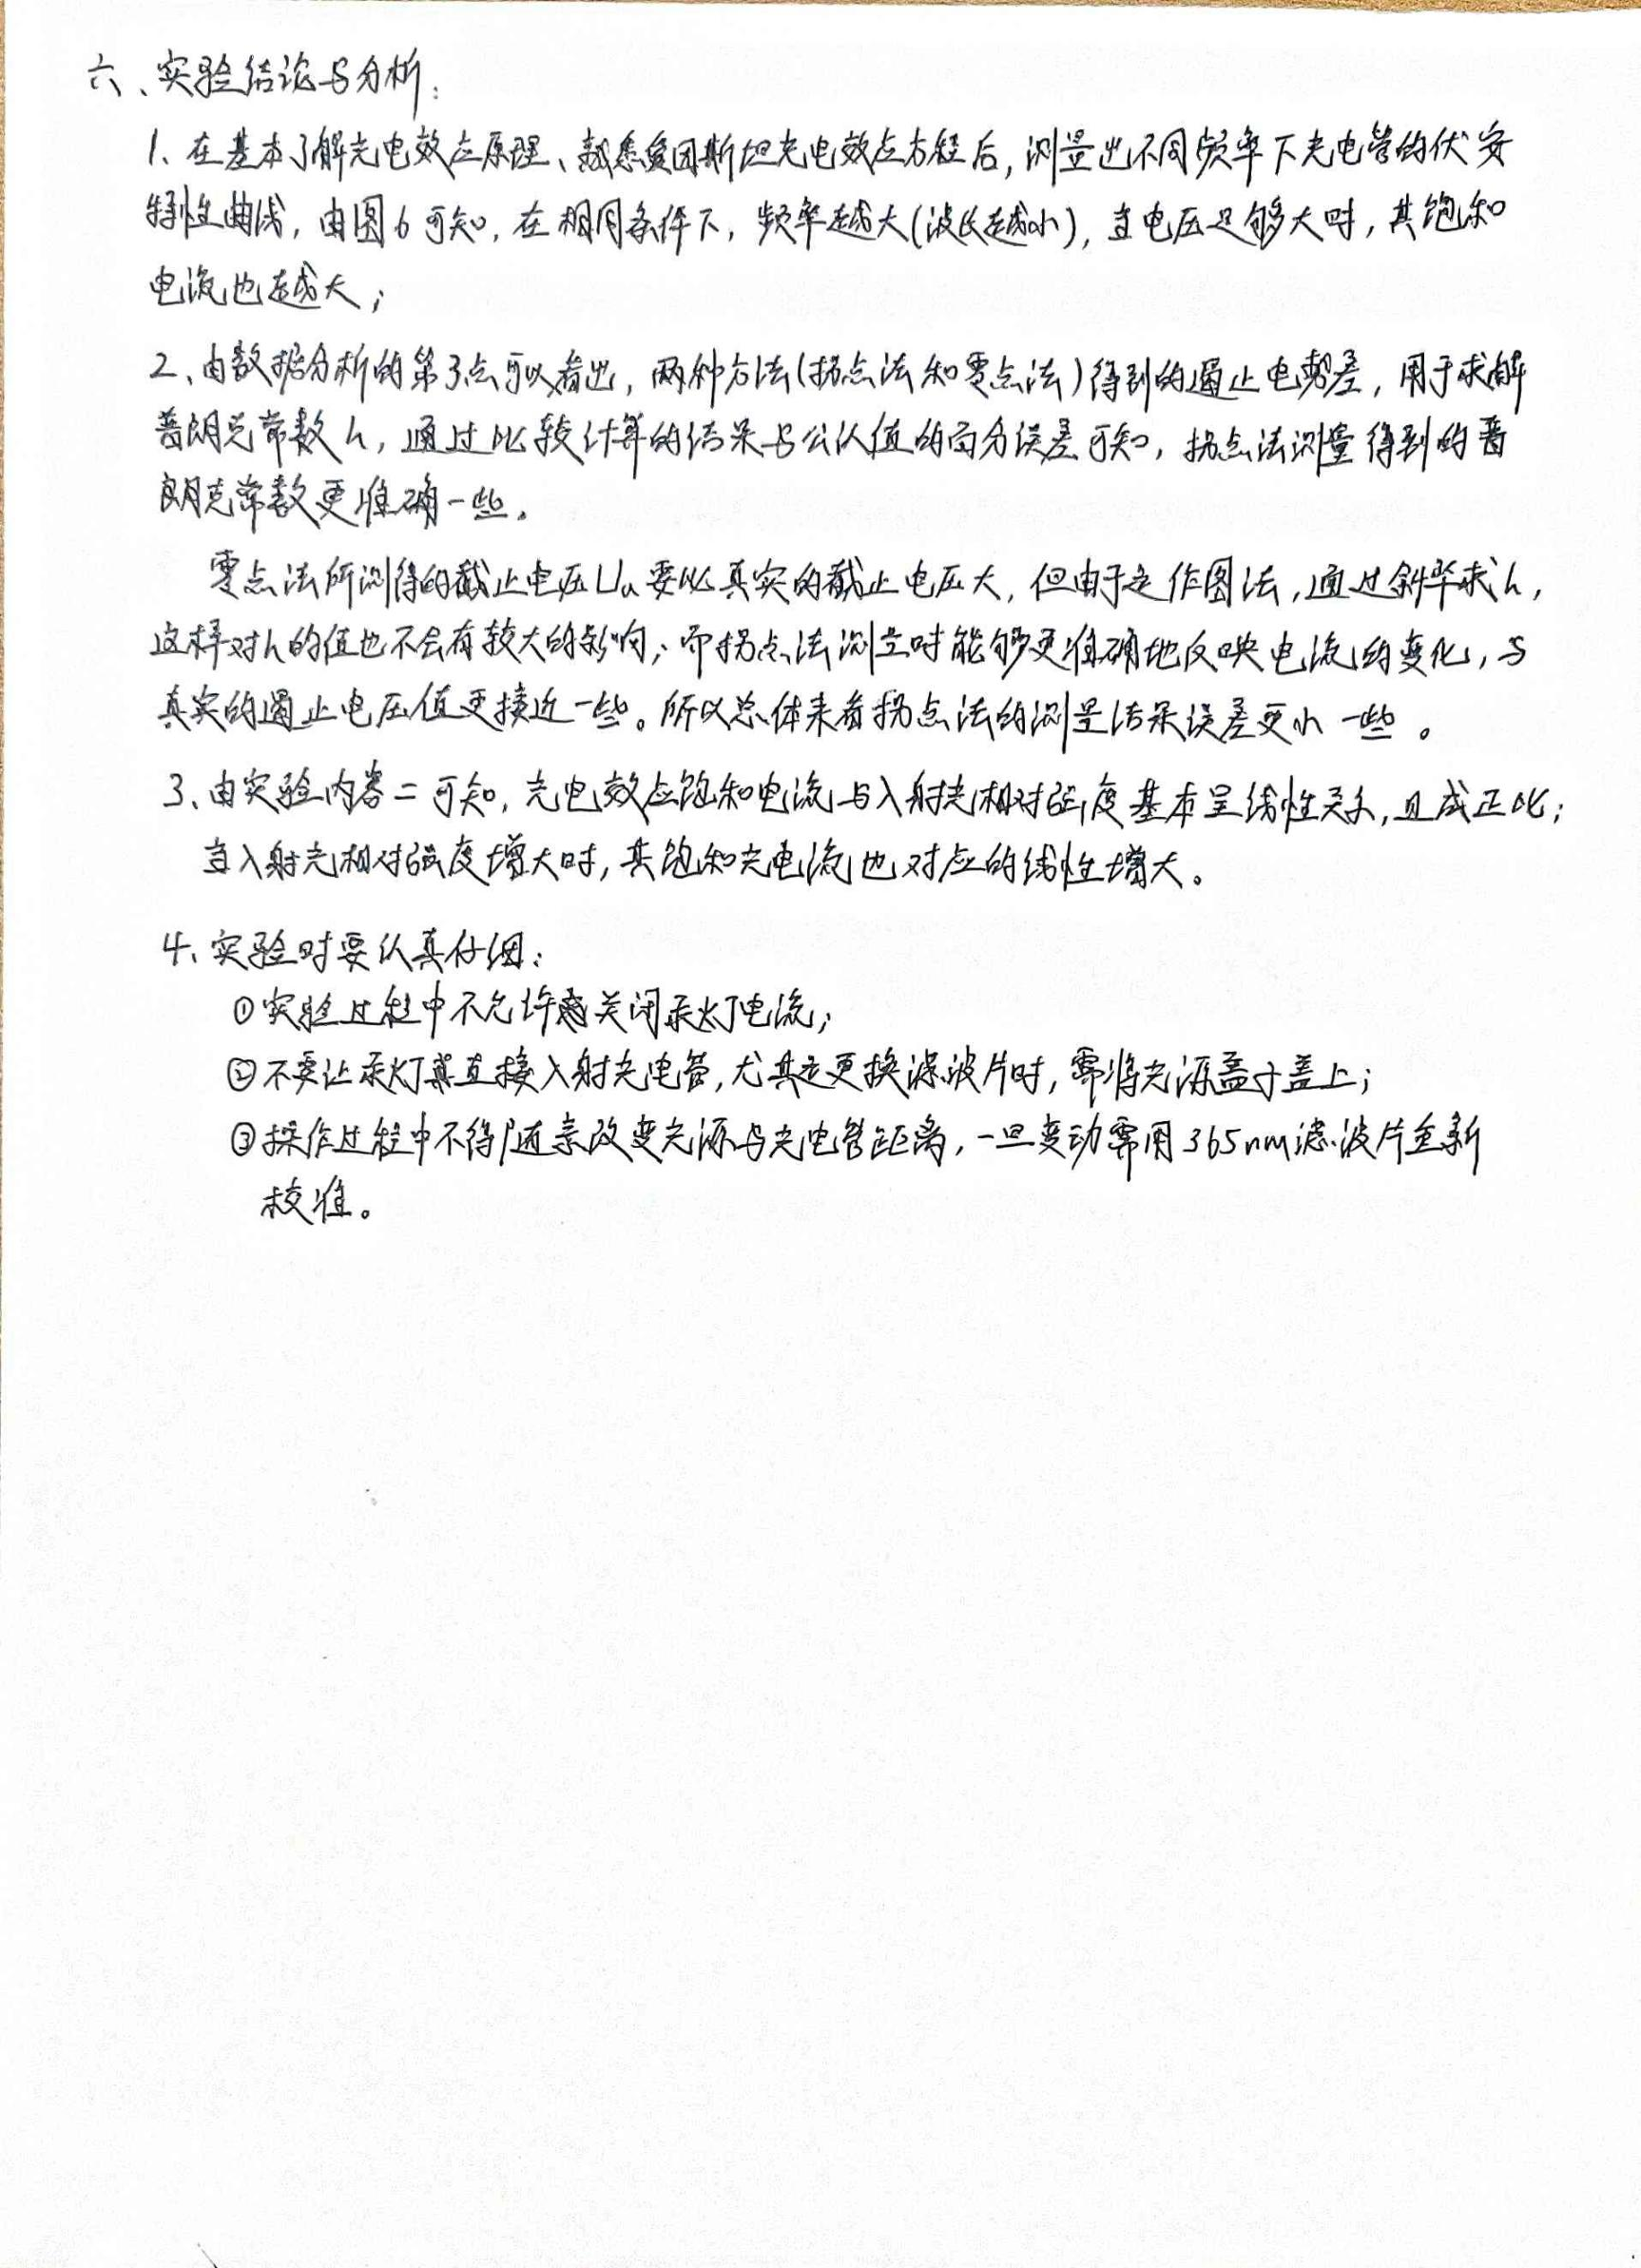 六、实验结论与分析:
1、在基本了解光电效应原理、熟悉爱因斯坦光电效应方程后,测量出不同频率下光电管的伏安
特性曲线,由图6可知,在相同条件下,频率越大(波长越小),当电压足够大时,其饱和
电流也越大;
2、由数据分析的第3点可以看出,两种方法(拐点法和零点法)得到的遏止电势差,用于求解
普朗克常数h,通过比较计算的结果与公认值的百分误差可知,拐点法测量得到的普
朗克常数更准确一些。
零点法所测得的截止电压Ua要比真实的截止电压大,但由于是作图法,通过斜率求h,
这样对h的值也不会有较大的影响;而拐点法测量时能够更准确地反映电流的变化,与
真实的遏止电压值更接近一些。所以总体来看拐点法的测量结果误差更小一些。
3、由实验内容二可知,光电效应饱和电流与入射光相对强度基本呈线性关系,且成正比;
当入射光相对强度增大时,其饱和光电流也对应的线性增大。
4、实验时要认真仔细:
①实验过程中不允许关闭汞灯电流;
②不要让汞灯直接入射光电管,尤其是更换滤波片时,需将光源盖子盖上;
③操作过程中不得随意改变光源与光电管距离,一旦变动需用365nm滤波片重新
校准。